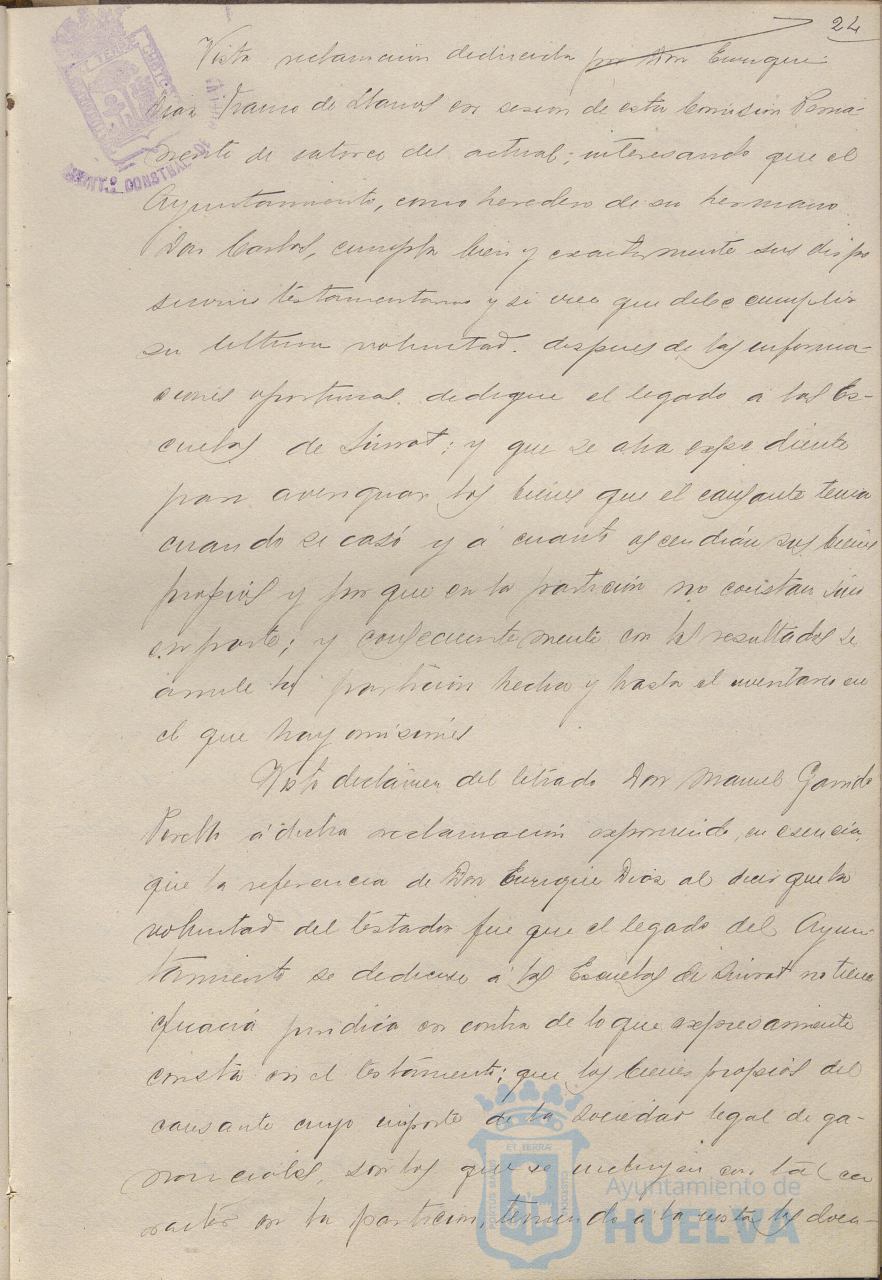 24
Vista reclamación deducida por Don Enrique
Diaz Franco de Llanos en sesión de esta Comisión Perma-
nente de catorce del actual; interesando que el
Ayuntamiento, como heredero de su hermano
Don Carlos, cumpla bien y exactamente sus dispo
siciones testamentarias y si cree que debe cumplir
su última voluntad. después de las informa-
ciones oportunas. dedique el legado a las Es-
cuelas de Siurot; y que se abra expediente
para averiguar los bienes que el causante tenia
cuando se casó y á cuanto ascendían sus bienes
propios y por que en la partición no constan sino
en parte; y consecuentemente con los resultados se
anule la partición hecha y hasta el inventario en
el que hay omisiones
Visto dictamen del letrado Don Manuel Garrido
Perelló á dicha reclamación exponiendo, en esencia,
que la referencia de Don Enrique Diaz al decir que la
voluntad del testador fue que el legado del Ayun-
tamiento se dedicase á las Escuelas de Siurot no tiene
eficacia juridica en contra de lo que expresamente
consta en el testamento; que los bienes propios del
causante cuyo importe de la Sociedad legal de ga-
nanciales, son los que se incluyen con tal ca
racter en la partición, teniendo á la vista los docu-
ET TERRA
Ayuntamiento de
HUELVA